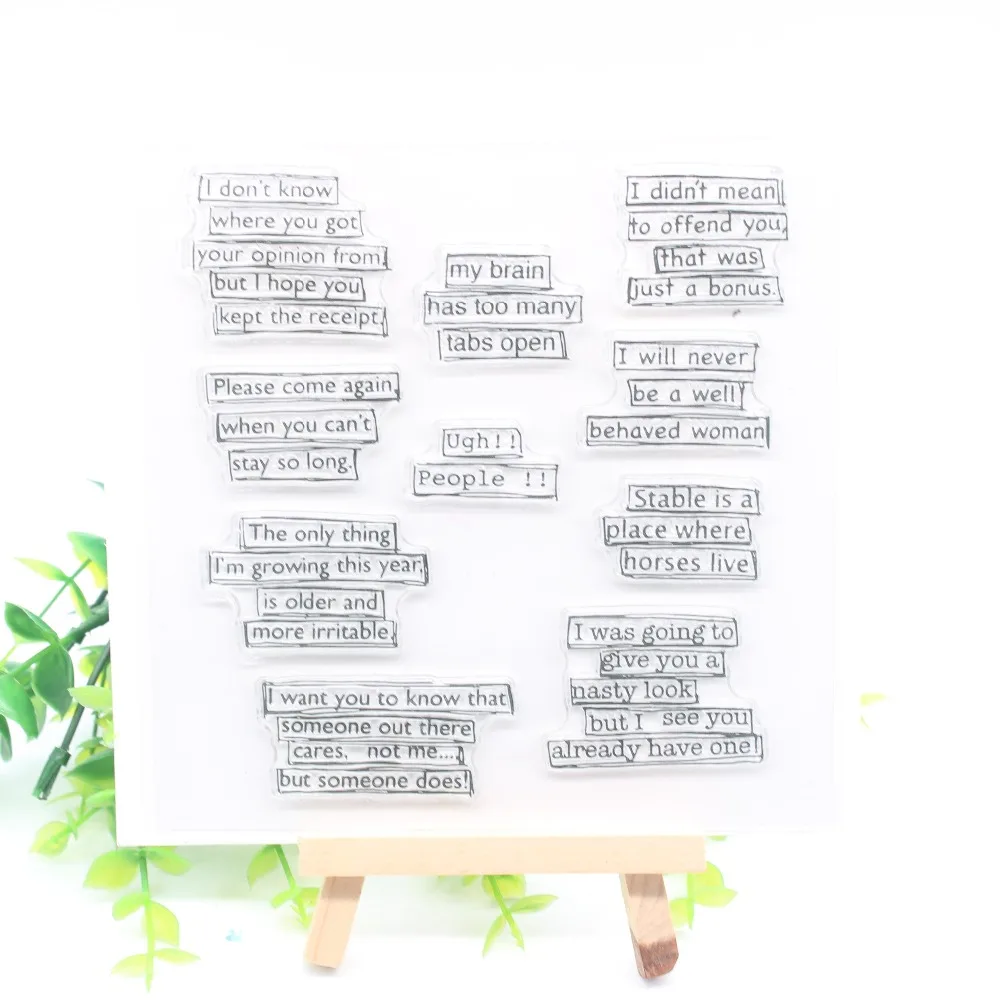 I don't know
where you got
your opinion from,
but I hope you
kept the receipt.
Please come again,
when you can't
stay so long.
The only thing
I'm growing this year,
is older and
more irritable.
I want you to know that
someone out there
cares, not me....,
but someone does!
my brain
has too many
tabs open
Ugh!!
People !!
I didn't mean
to offend you,
that was
just a bonus.
I will never
be a well
behaved woman
Stable is a
place where
horses live
I was going to
give you a
nasty look,
but I see you
already have one!